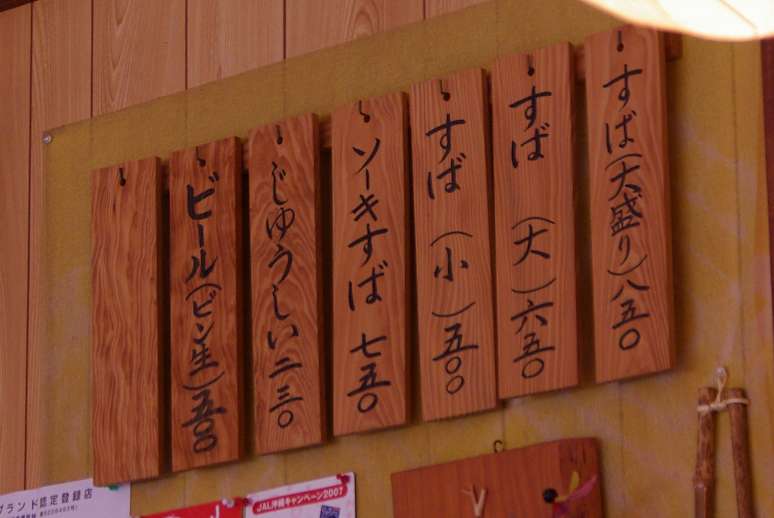 すば(大盛り)八五〇
すば(大)六五〇
すば(小)五〇〇
ソーキすば 七五〇
じゅうしい 二三〇
ビール(ビン生)五〇〇
ランド認定登録店
JAL沖縄キャンペーン2007